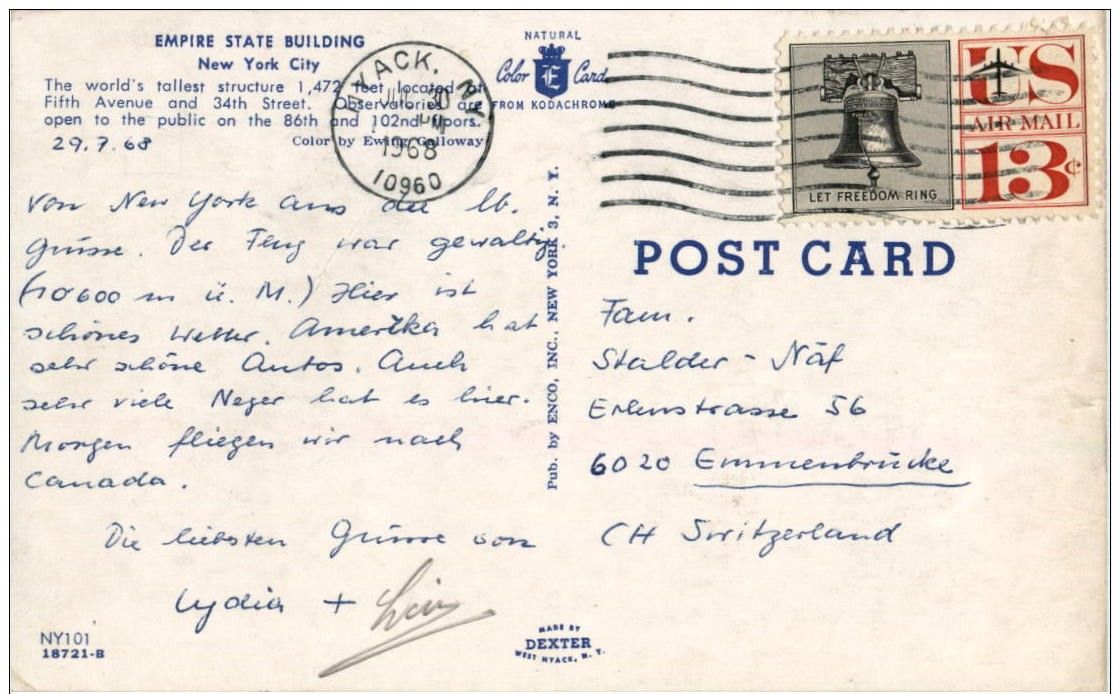 EMPIRE STATE BUILDING
New York City
The world's tallest structure 1,472 feet located at
Fifth Avenue and 34th Street. Observatories are
open to the public on the 86th and 102nd floors.
Color by Ewing Galloway
29.7.68
Von New York aus die lb.
Grüsse. Der Flug war gewaltig.
(10600 m ü. M.) Hier ist
schönes Wetter. Amerika hat
sehr schöne Autos. Auch
sehr viele Neger hat es hier.
Morgen fliegen wir nach
Canada.
Die liebsten Grüsse von
Lydia +
NY101
18721-B
NATURAL
Color E Card
FROM KODACHROME
NYACK, N.Y.
JUL 30
PM
1968
10960
Pub. by ENCO, INC., NEW YORK 3, N. Y.
MADE BY
DEXTER
WEST NYACK, N. Y.
LET FREEDOM RING
US
AIR MAIL
13¢
POST CARD
Fam.
Stalder - Näf
Erlenstrasse 56
6020 Emmenbrücke
CH Switzerland